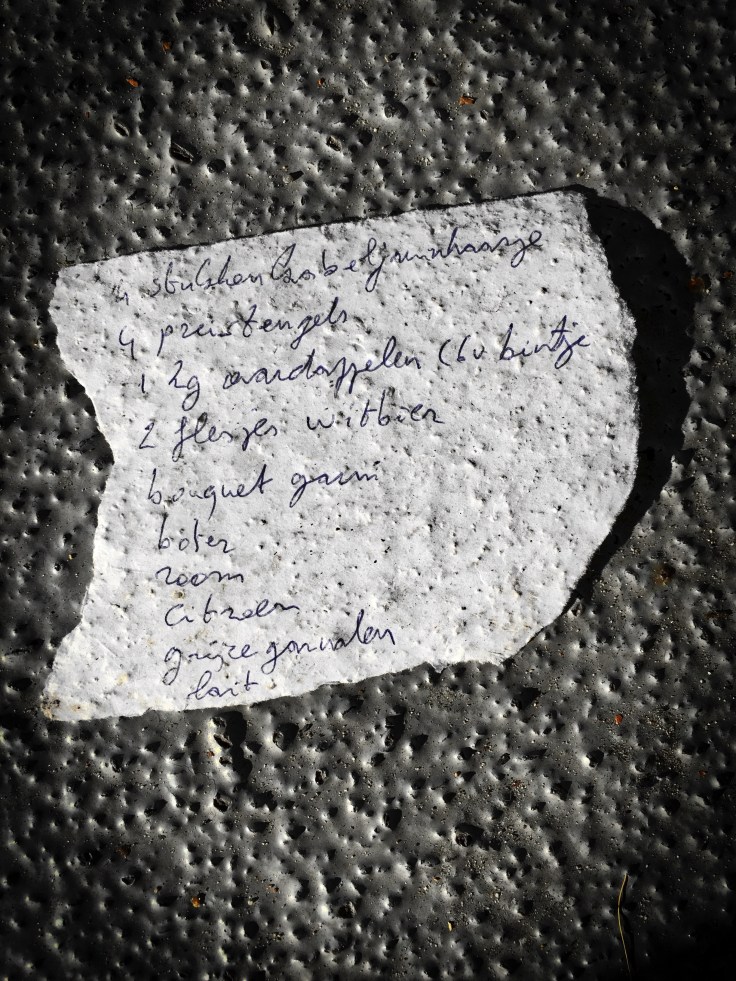 4 stukken kabeljauwhaasje
4 preistengels
1 kg aardappelen (bv bintje
2 flesjes witbier
bouquet garni
boter
room
citroen
grijze garnalen
lait